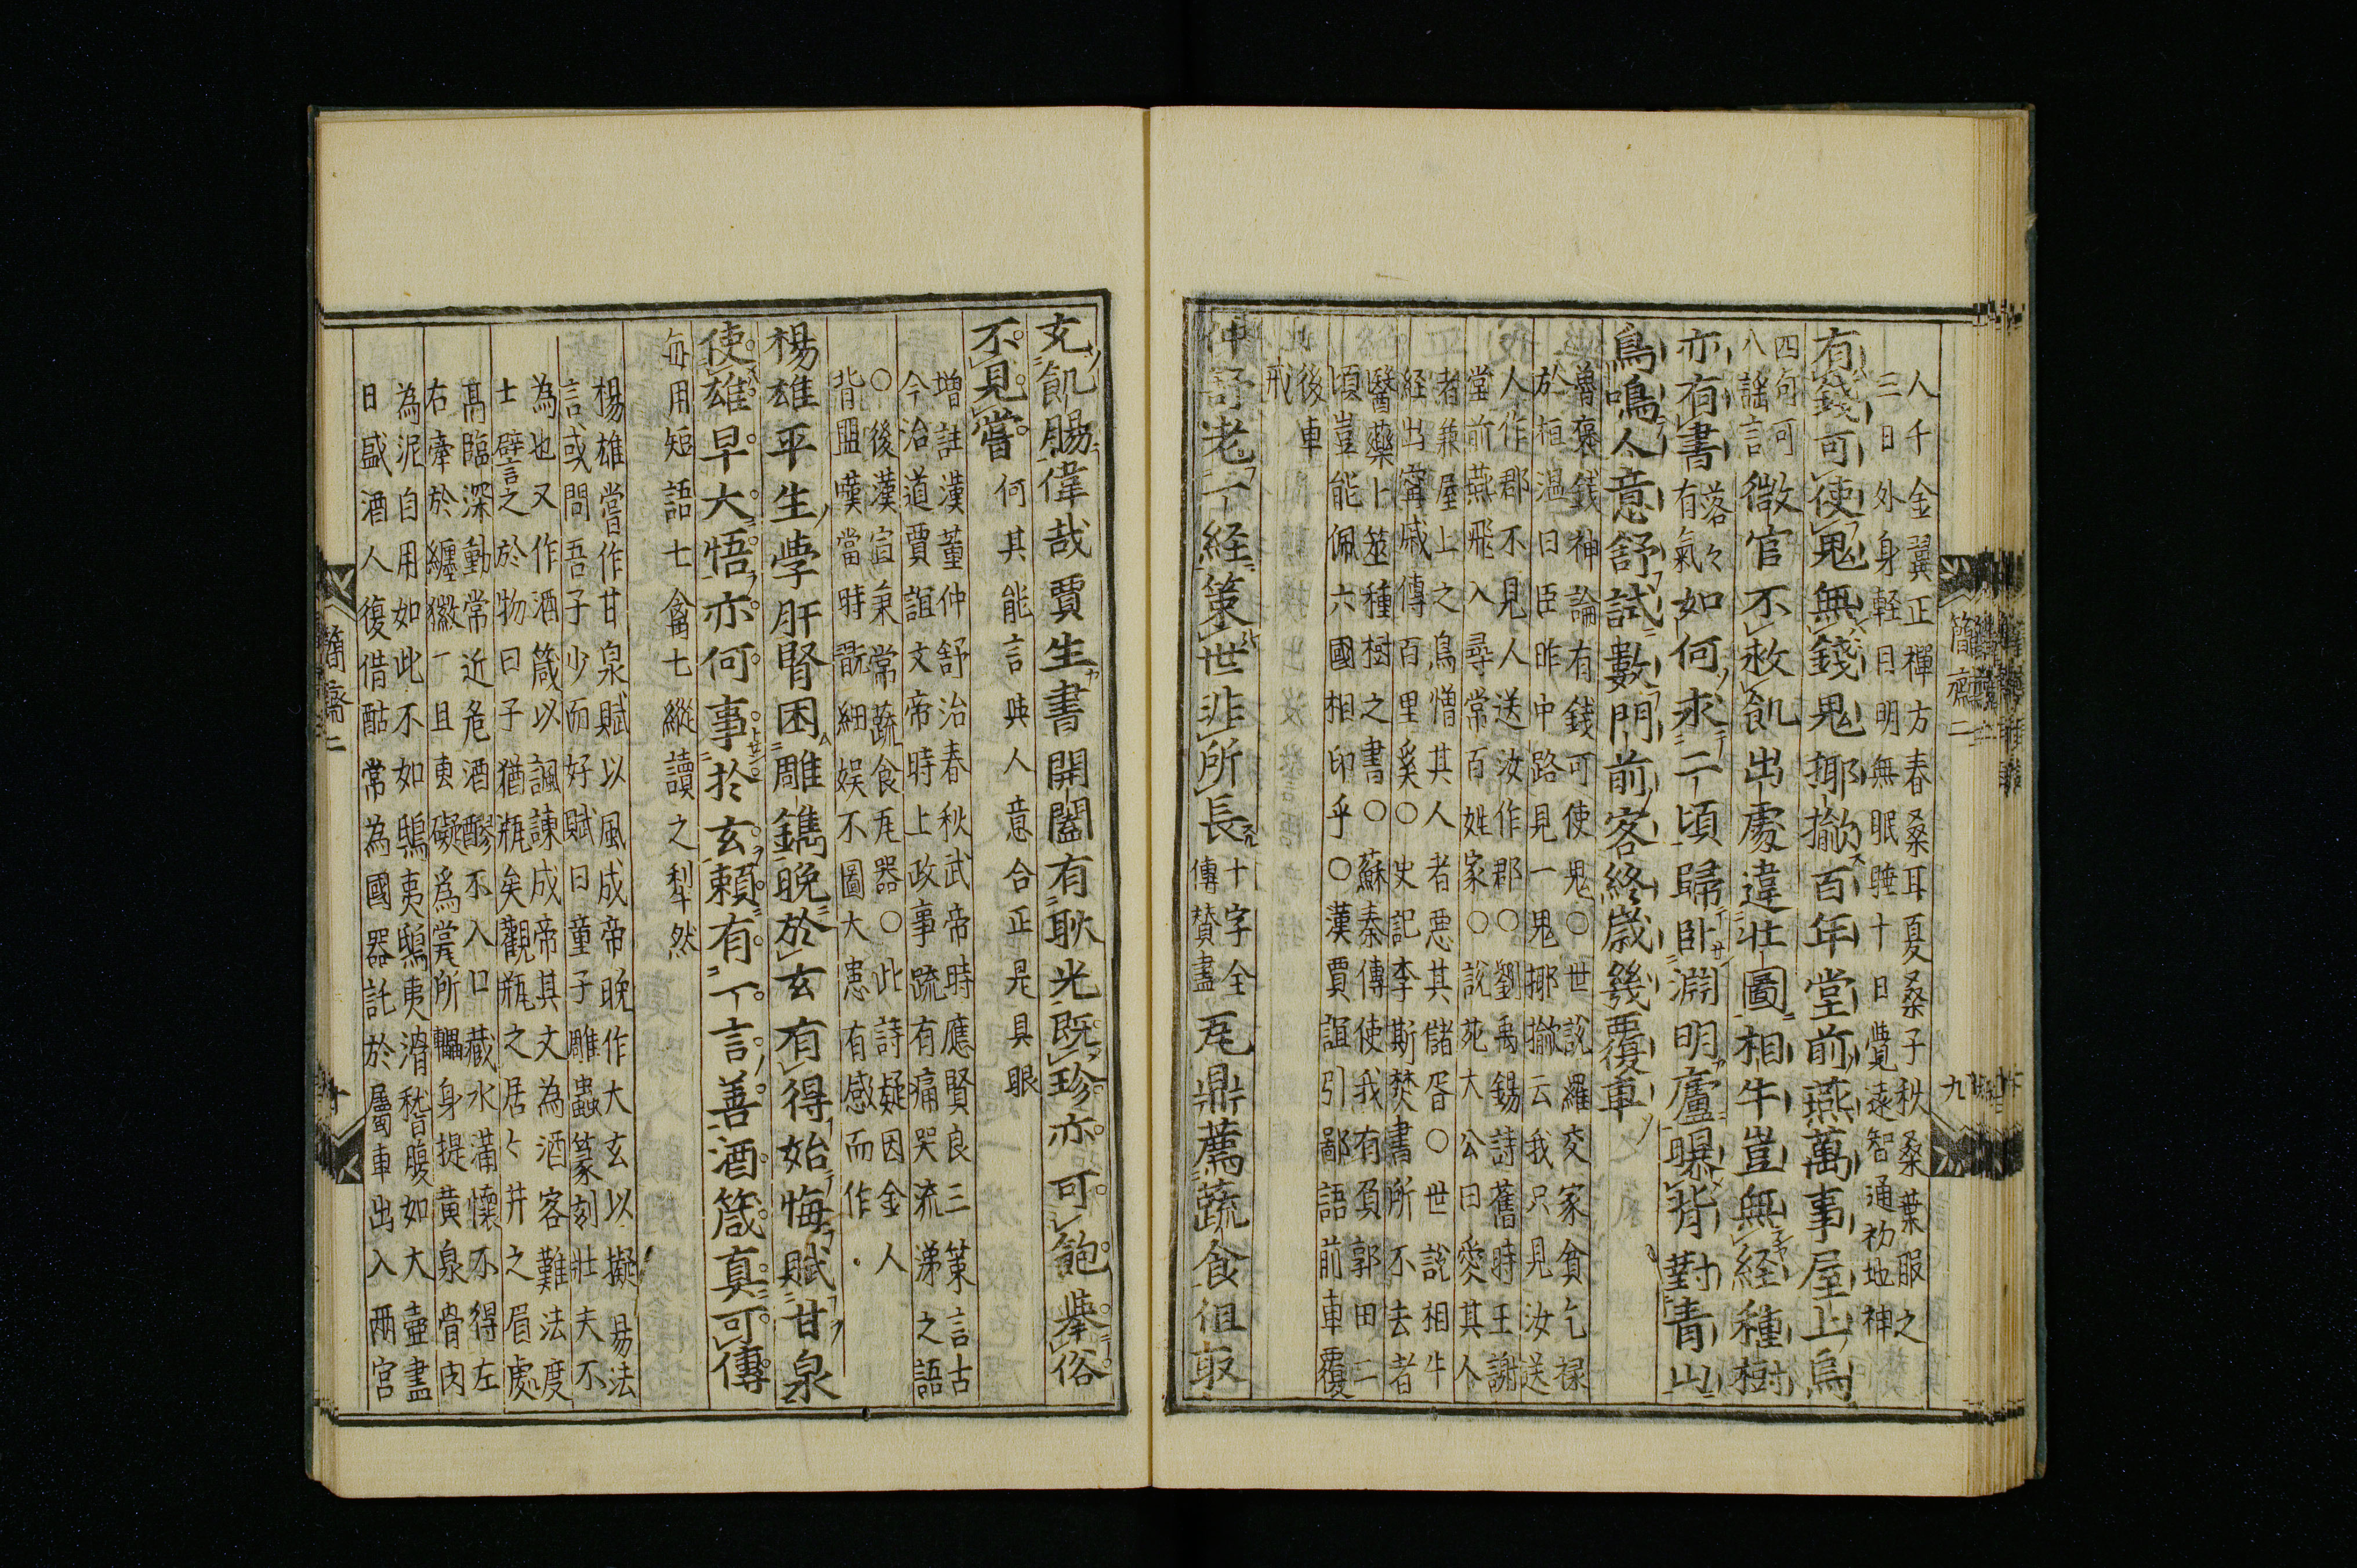 人千金翼正禪方春桑耳夏桑子秋桑葉服之
三日外身軽目明無眠睡十日覺遠智通初地神
有錢可使鬼無錢鬼揶撳百年堂前燕萬事屋上烏
四句可
八謡言
微官不救飢出處違壮圖相牛豈無経種樹
亦有書
落々
有氣
如何求二頃歸臥淵明廬曝背對青山
鳥鳴人意舒試數門前客終歳幾覆車
魯褒錢神論有錢可使鬼○世說羅友家貧乞禄
於桓温曰臣昨中路見一鬼揶撳云我只見汝送
人作郡不見人送汝作郡○劉禹錫詩舊時王謝
堂前燕飛入尋常百姓家○說苑大公曰愛其人
者兼屋上之烏憎其人者悪其儲胥○世說相牛
経出寗戚傳百里奚○史記李斯焚書所不去者
醫藥卜筮種樹之書○蘇秦傳使我有負郭田二
頃豈能佩六國相印乎○漢賈誼引鄙語前車覆
後車
戒
仲舒老一経策世非所長
十字全
傳賛盡
瓦鼎薦蔬食徂取
簡齋二
九
充飢腸偉哉賈生書開闔有耿光既珍亦可飽擧俗
不見嘗
何其能言與人意合正是具眼
增註漢董仲舒治春秋武帝時應賢良三策言古
今治道賈誼文帝時上政事疏有痛哭流涕之語
○後漢宣秉常蔬食瓦器○此詩疑因金人
背盟嘆當時翫細娱不圖大患有感而作
楊雄平生學肝腎困雕鐫晚於玄有得始悔賦甘泉
使雄早大悟亦何事於玄頼有一言善酒箴真可傳
每用短語七禽七縱讀之犁然
楊雄嘗作甘泉賦以風成帝晚作大玄以擬易法
言或問吾子少而好賦曰童子雕蟲篆刻壮夫不
為也又作酒箴以諷諌成帝其文為酒客難法度
士譬之於物曰子猶瓶矣觀瓶之居々井之眉處
髙臨深動常近危酒醪不入口藏水滿懷不得左
右牽於纒徽一旦叀礙爲瓽所轠身提黄泉骨肉
為泥自用如此不如鴟夷鴟夷滑稽腹如大壷盡
日盛酒人復借酤常為國器託於屬車出入兩宮
簡齋二
十